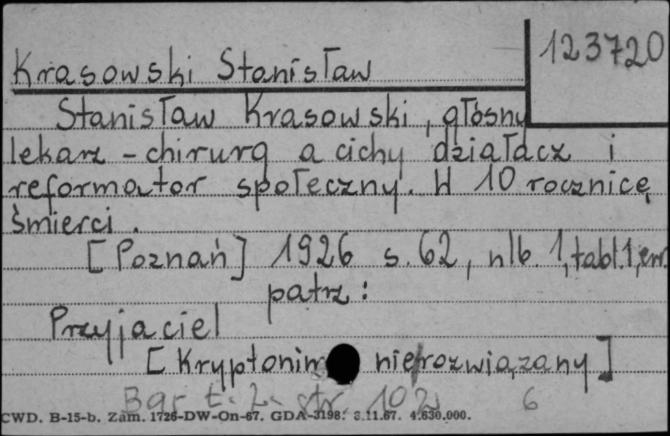 123720
Krasowski Stanisław
Stanisław Krasowski, głośny
lekarz - chirurg a cichy działacz i
reformator społeczny. W 10 rocznicę
śmierci.
[Poznań] 1926 s. 62, nlb. 1, tabl. 1, err.
patrz:
Przyjaciel
[Kryptonim nierozwiązany]
Bar t. 2. str 102 6
CWD. B-15-b. Zam. 1726-DW-On-67. GDA-3198. 3.11.67. 4.630.000.